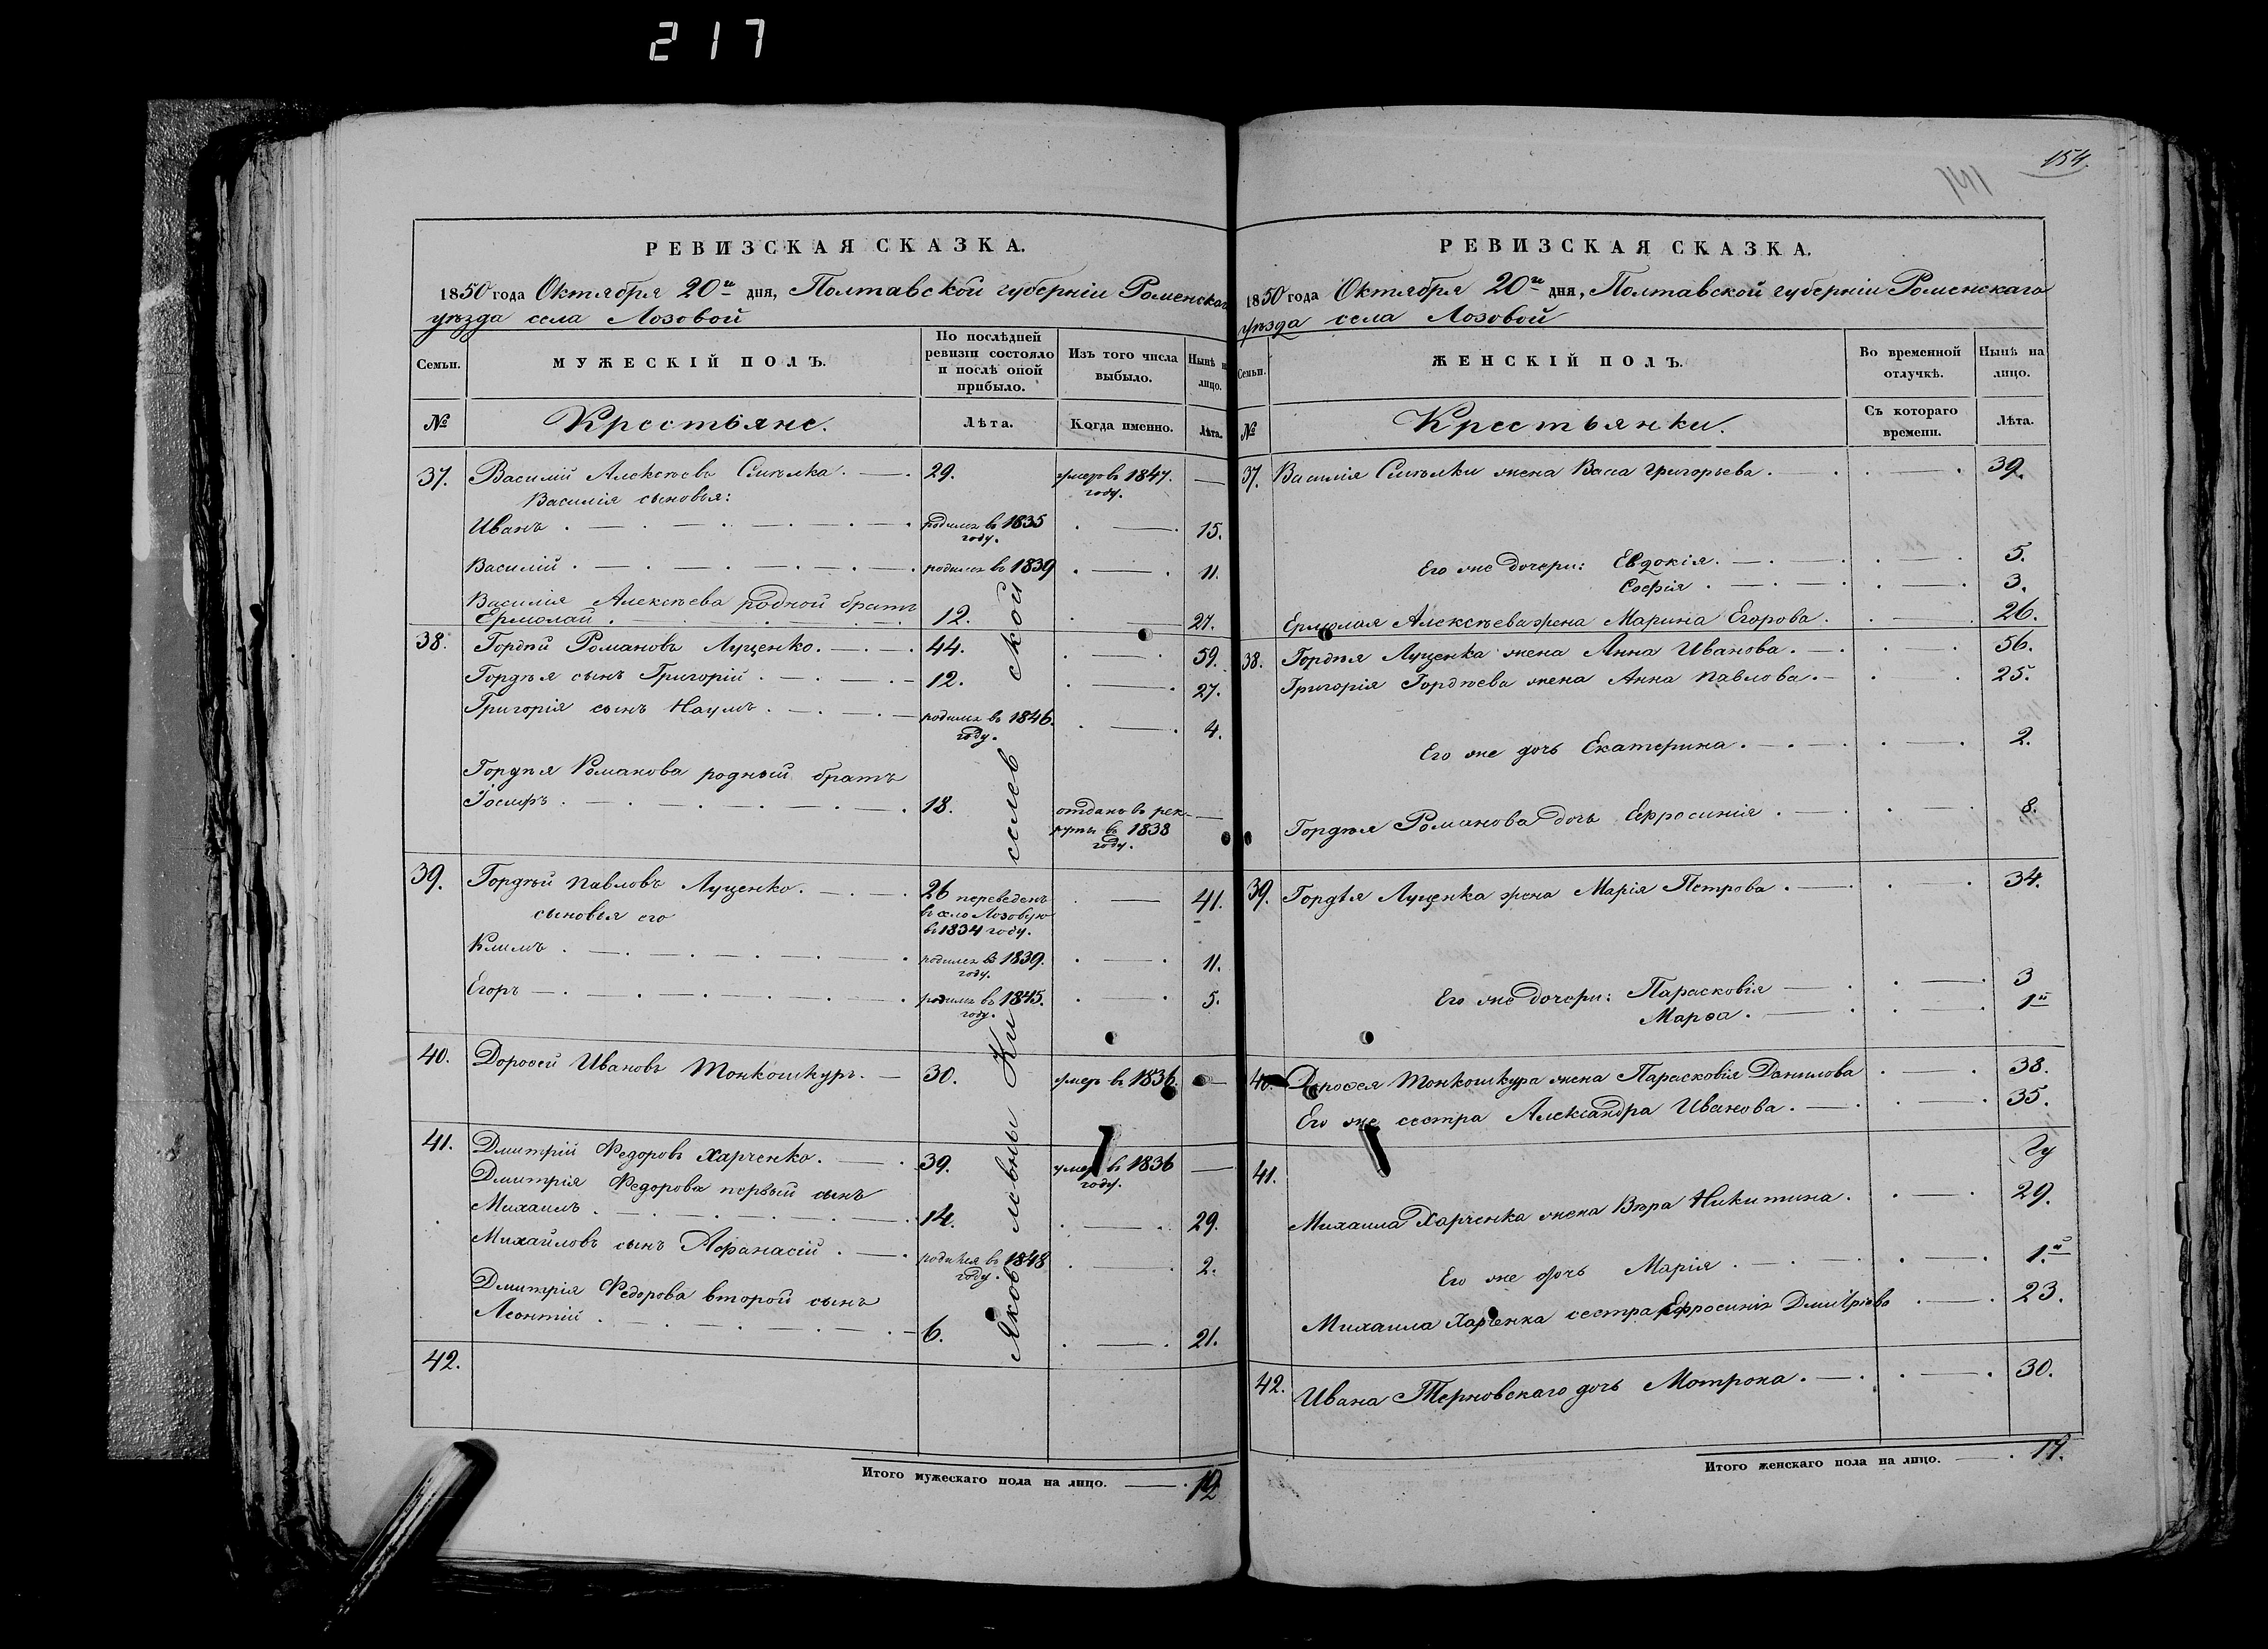 217
154.
141
РЕВИЗСКАЯ СКАЗКА.
1850 года Октября 20го дня, Полтавской губерніи Роменскаго
уѣзда села Лозовой
Семьи.
МУЖЕСКІЙ ПОЛЪ.
По послѣдней ревизіи состояло и послѣ оной прибыло.
Изъ того числа выбыло.
Нынѣ на лицо.
№
Крестьяне.
Лѣта.
Когда именно.
Лѣта.
37. Василій Алексѣевъ Смѣлка. 29. умеръ въ 1847. году. —
Василія сыновья:
Иванъ. родился въ 1835 году. 15.
Василій. родился въ 1839 11.
Василія Алексѣева родной братъ
Ермолай. 12. 27.
38. Гордѣй Романовъ Луценко. 44. 59.
Гордѣя сынъ Григорій. 12. 27.
Григорія сынъ Наумъ. родился въ 1846. году. 4.
Гордѣя Романова родный братъ
Іосифъ. 18. отданъ въ рекруты въ 1838 году. —
39. Гордѣй Павловъ Луценко. 26 переведенъ въ село Лозовую въ 1834 году. 41.
сыновья его
Климъ. родился въ 1839. году. 11.
Егоръ. родился въ 1845. году. 5.
40. Дороѳей Ивановъ Тонкошкуръ. 30. умеръ въ 1836. —
41. Дмитрій Федоровъ Харченко. 39. умеръ въ 1836 году. —
Дмитрія Федорова первый сынъ
Михаилъ. 14. 29.
Михайловъ сынъ Афанасій. родился въ 1848 году. 2.
Дмитрія Федорова второй сынъ
Леонтій. 6. 21.
42.
Яковлевны Киселевской
Итого мужескаго пола на лицо. 12
РЕВИЗСКАЯ СКАЗКА.
1850 года Октября 20го дня, Полтавской губерніи Роменскаго
уѣзда села Лозовой
Семьи.
ЖЕНСКІЙ ПОЛЪ.
Во временной отлучкѣ.
Нынѣ на лицо.
№
Крестьянки.
Съ котораго времени.
Лѣта.
37. Василія Смѣлки жена Васса Григорьева. 39.
Его же дочери: Евдокія. 5.
Софія. 3.
Ермолая Алексѣева жена Марина Егорова. 26.
38. Гордѣя Луценка жена Анна Иванова. 56.
Григорія Гордѣева жена Анна Павлова. 25.
Его же дочь Екатерина. 2.
Гордѣя Романова дочь Ефросинія. 8.
39. Гордѣя Луценка жена Марія Петрова. 34.
Его же дочери: Парасковія 3
Марѳа. 1й
40. Дороѳея Тонкошкура жена Парасковія Данилова 38.
Его же сестра Александра Иванова. 35.
41.
Михаила Харченка жена Вѣра Никитина. 29.
Его же дочь Марія. 1й
Михаила Харченка сестра Ефросинія Дмитріева 23.
42. Ивана Терновскаго дочь Мотрона. 30.
Итого женскаго пола на лицо. 17.